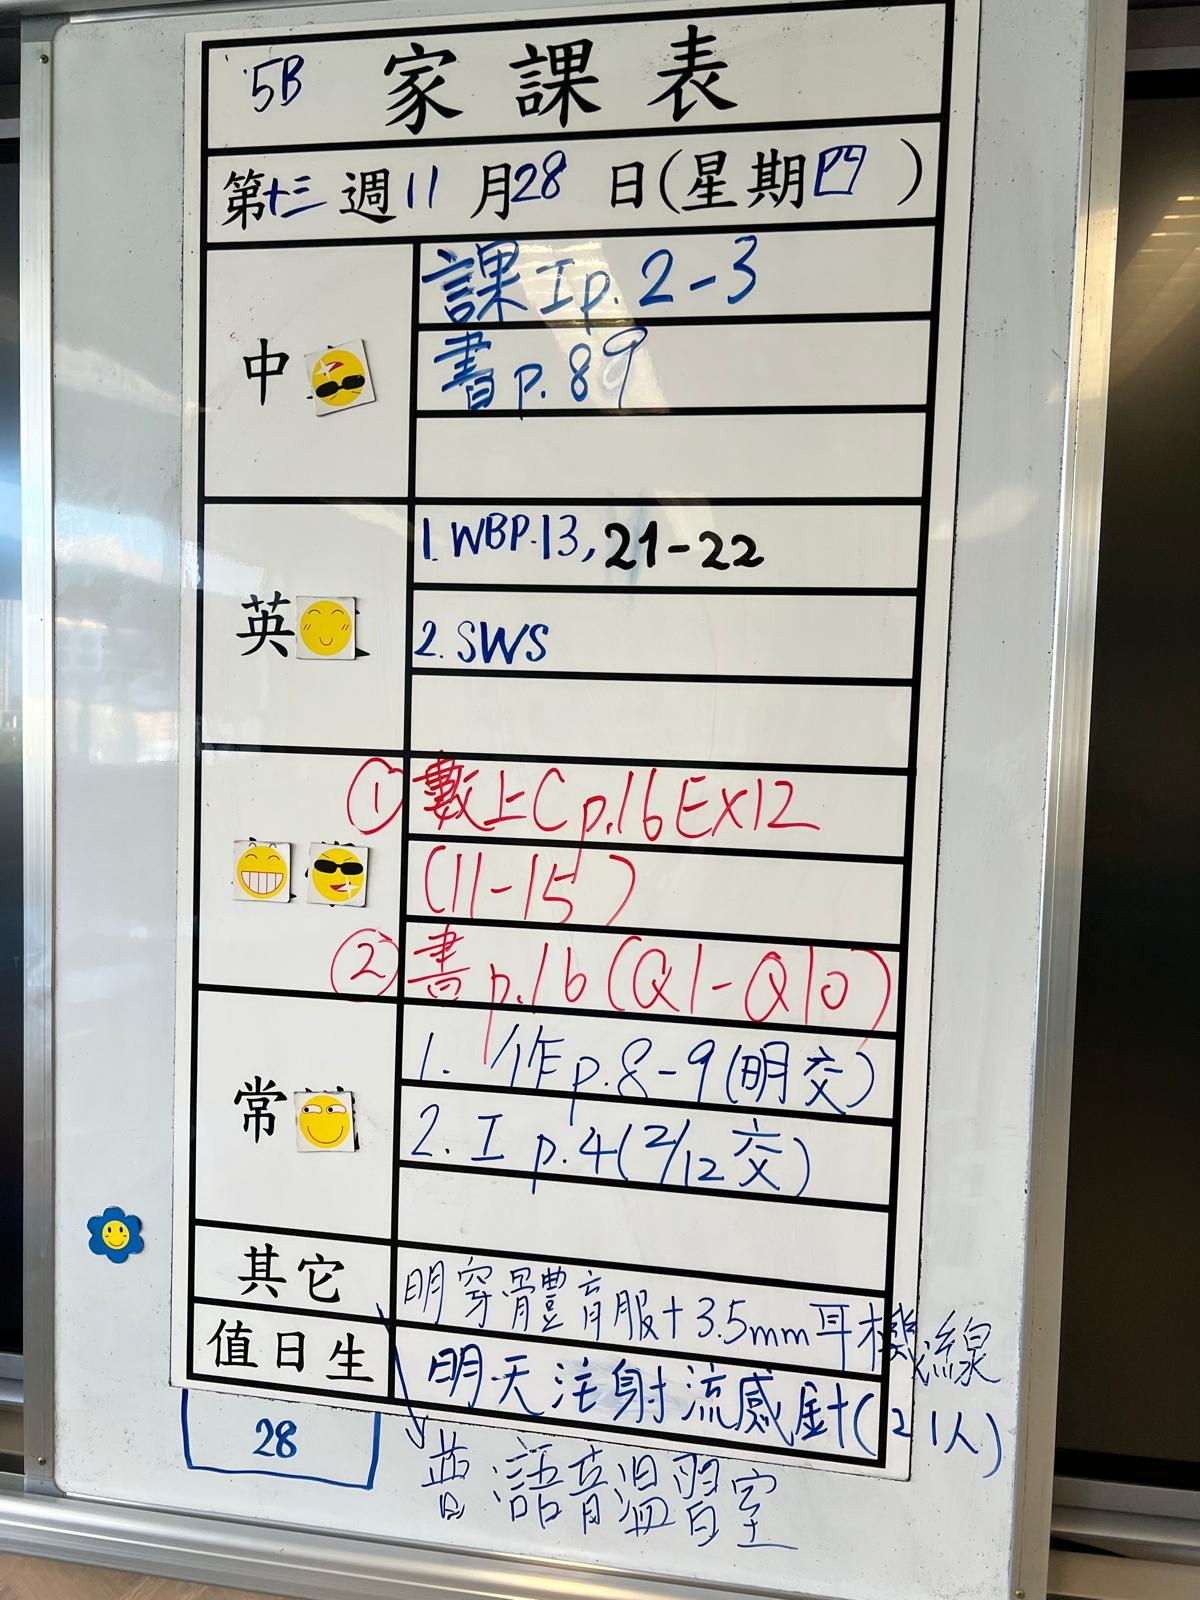 5B 家課表
第十三週11月28日(星期四)
中
課Ip.2-3
書p.89
英
1. WBP.13, 21-22
2. SWS
① 數上Cp.16Ex12
(11-15)
② 書p.16(Q1-Q10)
常
1. 作p.8-9(明交)
2. I p.4(2/12交)
其它
明穿體育服+3.5mm耳機線
值日生
明天注射流感針(21人)
28
普語音溫習室